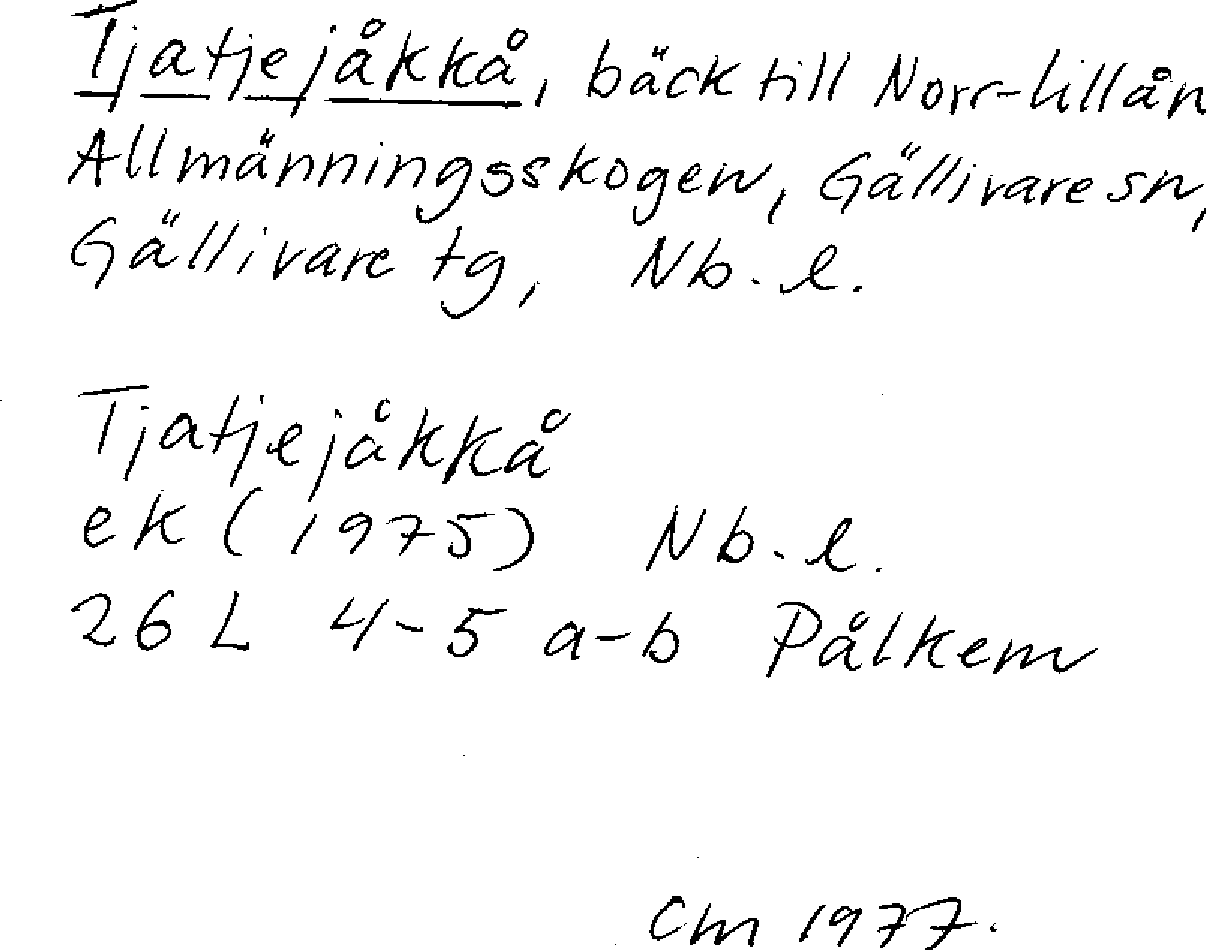 Tjatjejåkkå, bäck till Norr-Lillån
Allmänningsskogen, Gällivare sn,
Gällivare tg, Nb. l.
Tjatjejåkkå
ek (1975) Nb. l.
26 L 4-5 a-b Pålkem
Cm 1977.